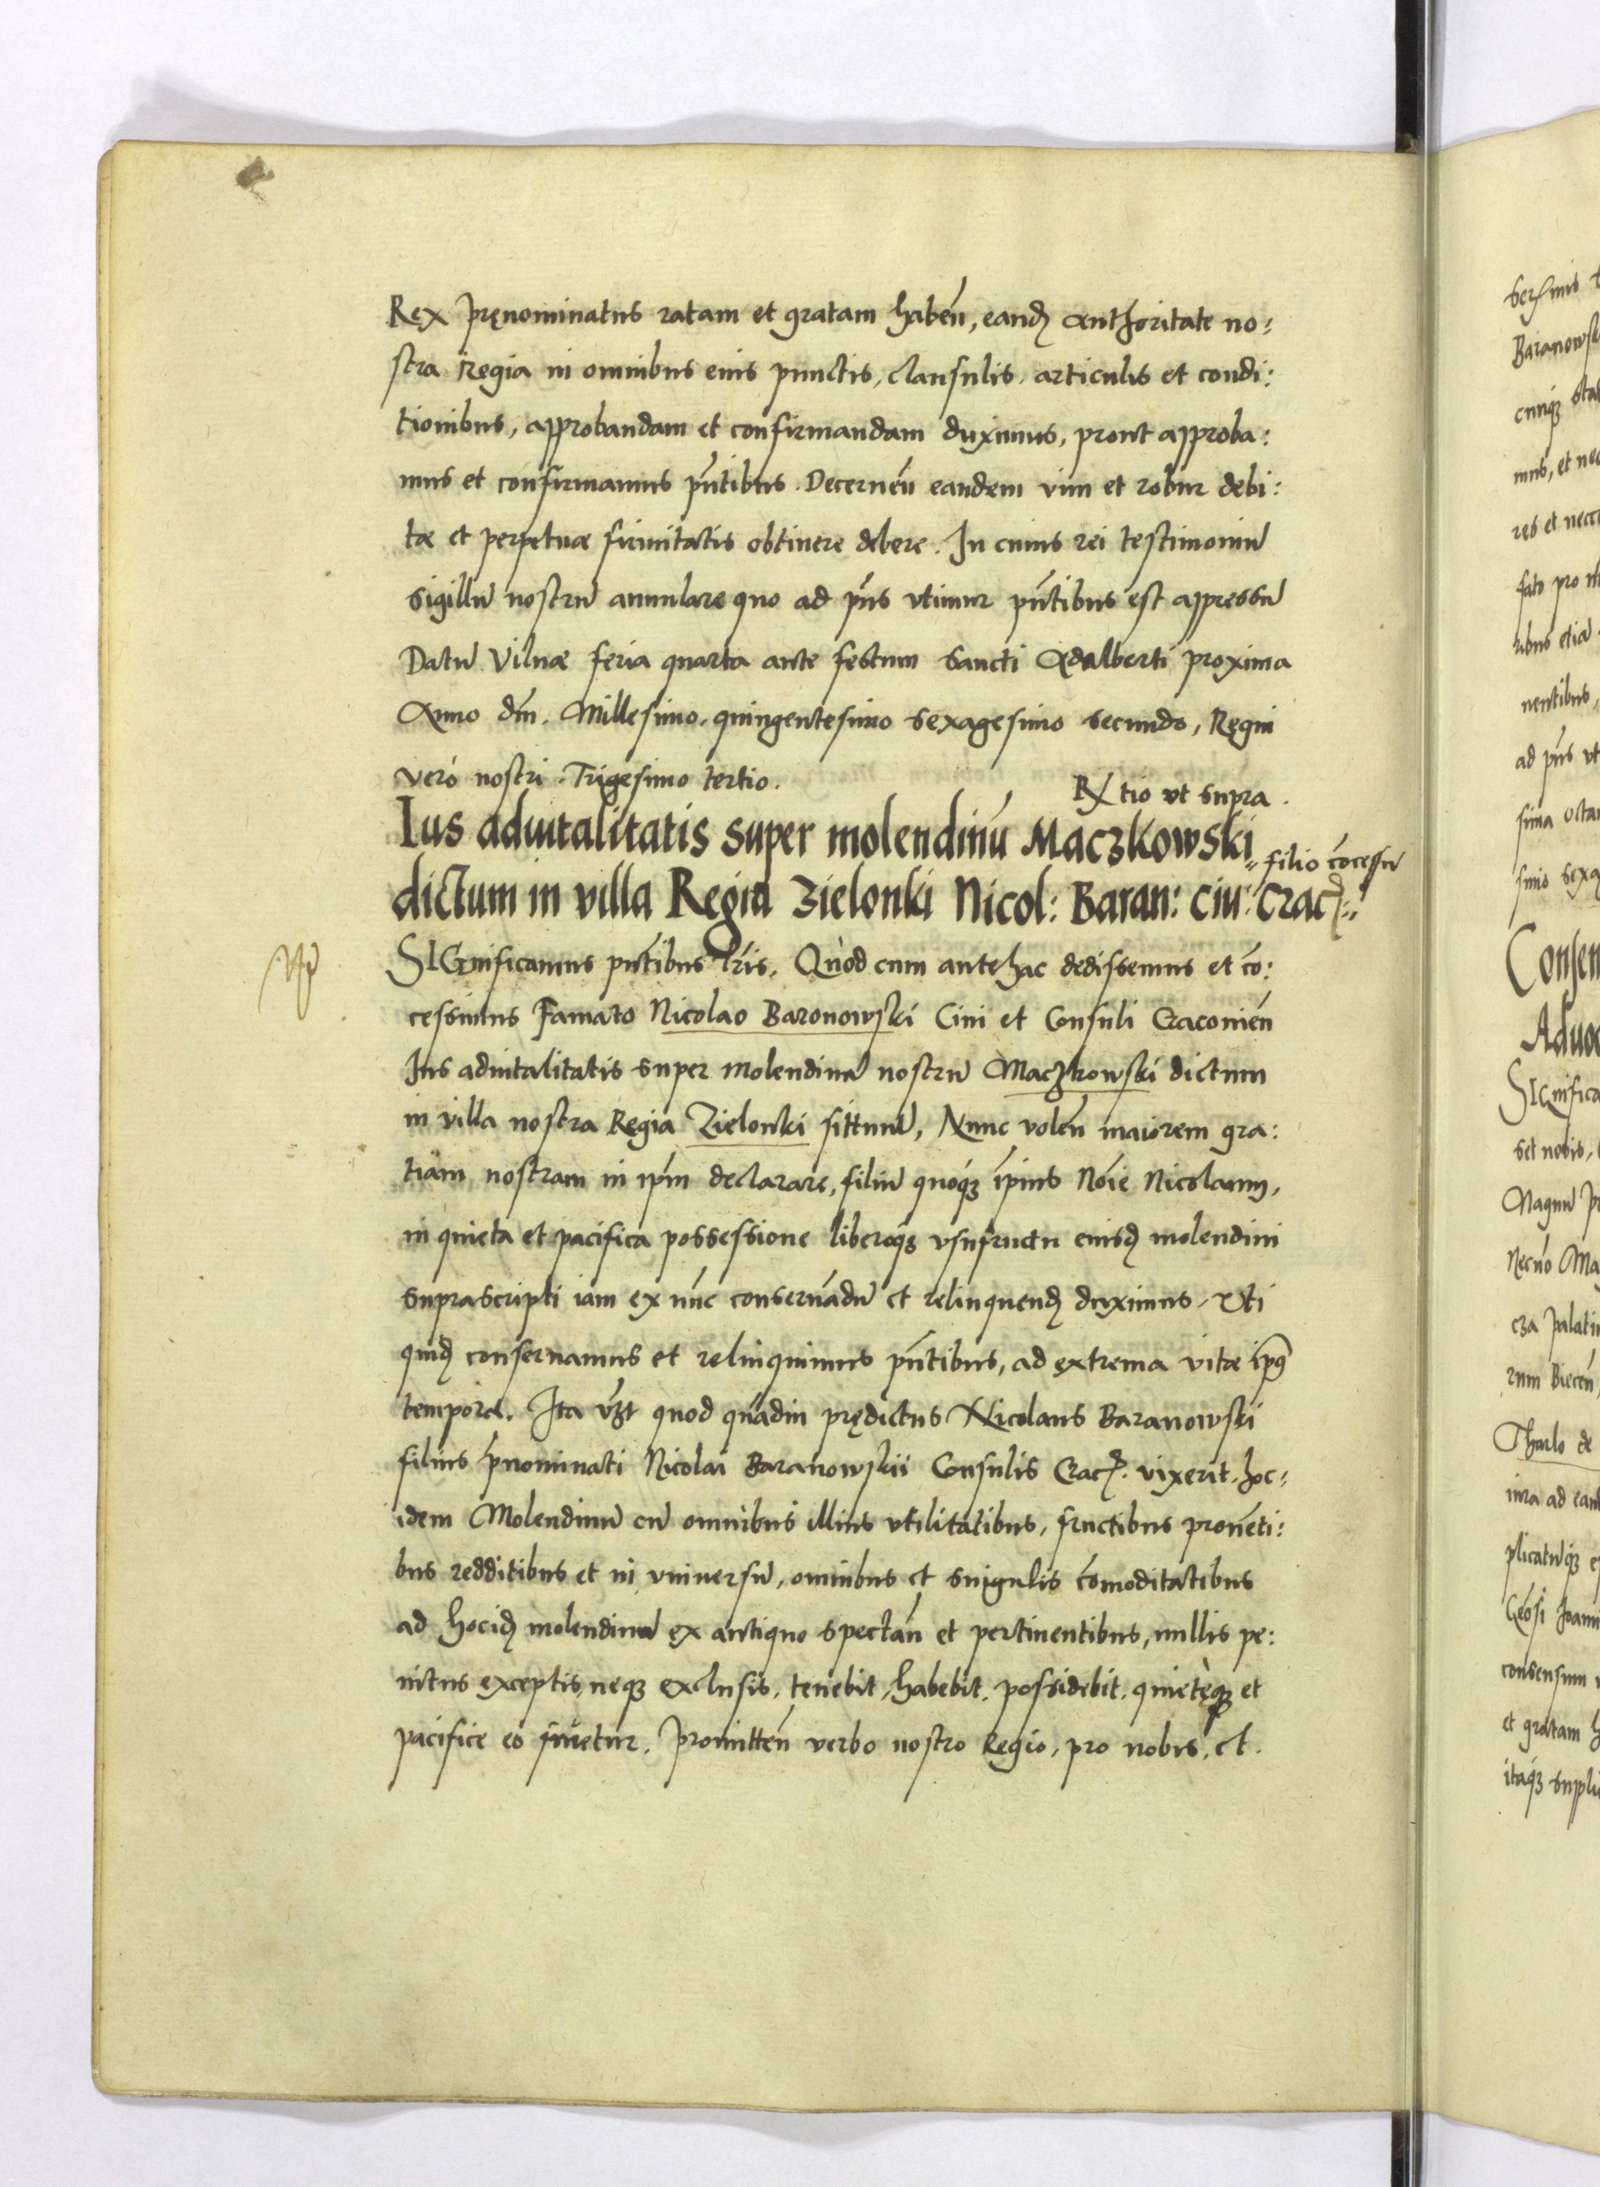 Rex pręnominatus ratam et gratam habeñ, eandꝫ authoritate no:
stra Regia in omnibus eius punctis, clausulis, articulis et condi:
tionibus, approbandam et confirmandam duximus, prout approba:
mus et confirmamus pñtibus. Decerneñ eandem vim et robur debi:
tæ et perpetuæ firmitatis obtinere debere. In cuius rei testimoniū
sigillū nostrū annulare quo ad pñs vtimur pñtibus est appressū
Datū Vilnæ feria quarta ante festum Sancti Adalberti proxima
Anno dñi. Millesimo, quingentesimo sexagesimo secundo, Regni
verò nostri. Trigesimo tertio.
Rtio vt supra.
Ius aduitalitatis super molendinū Maczkowski
filio cōcessū
dictum in villa Regia Zielonki Nicol: Baran: Ciu: Crac:
SIGnificamus pñtibus lris. Quòd cum antehac dedissemus et cō:
cessimus Famato Nicolao Baronowski Ciui et Consuli Cracouieñ
Ius aduitalitatis super molendinū nostrū Maczkowski dictum
in villa nostra Regia Zielonki sittum, Nunc voleñ maiorem gra:
tiam nostram in ipm declarare, filiū quoqꝫ ipius Nōie Nicolaum,
in quieta et pacifica possessione liberoqꝫ vsufructu eiusdꝫ molendini
suprascripti iam ex nūc conseruādū et relinquendꝫ duximus, Vti
quidꝫ conseruamus et relinquimus pñtibus, ad extrema vitæ ipiꝰ
tempora. Ita vꝫt quod quādiu prędictus Nicolaus Baranowski
filius pnominati Nicolai Baranowskii Consulis Crac. vixerit, hoc:
idem Molendinū cū omnibus illius vtilitatibus, fructibus prouēti:
bus redditibus et in vniuersū, omnibus et singulis cōmoditatibus
ad hocidꝫ molendinū ex antiquo spectañ et pertinentibus, nullis pe:
nitus exceptis, neqꝫ exclusis, tenebit, habebit, possidebit, quietèqꝫ et
pacifice eo fruetur. Promitteñ verbo nostro Regio, pro nobis, et